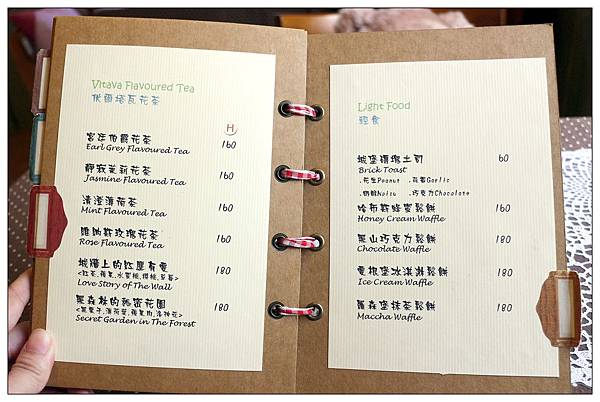 Vltava Flavoured Tea
伏爾塔瓦花茶
H
宮廷伯爵花茶 160
Earl Grey Flavoured Tea
靜寂茉莉花茶 160
Jasmine Flavoured Tea
清澄薄荷茶 160
Mint Flavoured Tea
維納斯玫瑰花茶 160
Rose Flavoured Tea
城牆上的紅屋有愛 180
Love Story of The Wall
黑森林的秘密花園 180
Secret Garden in The Forest
Light Food
輕食
城堡磚塊土司 60
Brick Toast
.花生Peanut .蒜香Garlic
.奶酥Naisu .巧克力Chocolate
哈布斯蜂蜜鬆餅 160
Honey Cream Waffle
黑山巧克力鬆餅 180
Chocolate Waffle
皇根堡冰淇淋鬆餅 180
Ice Cream Waffle
羅森堡抹茶鬆餅 180
Maccha Waffle